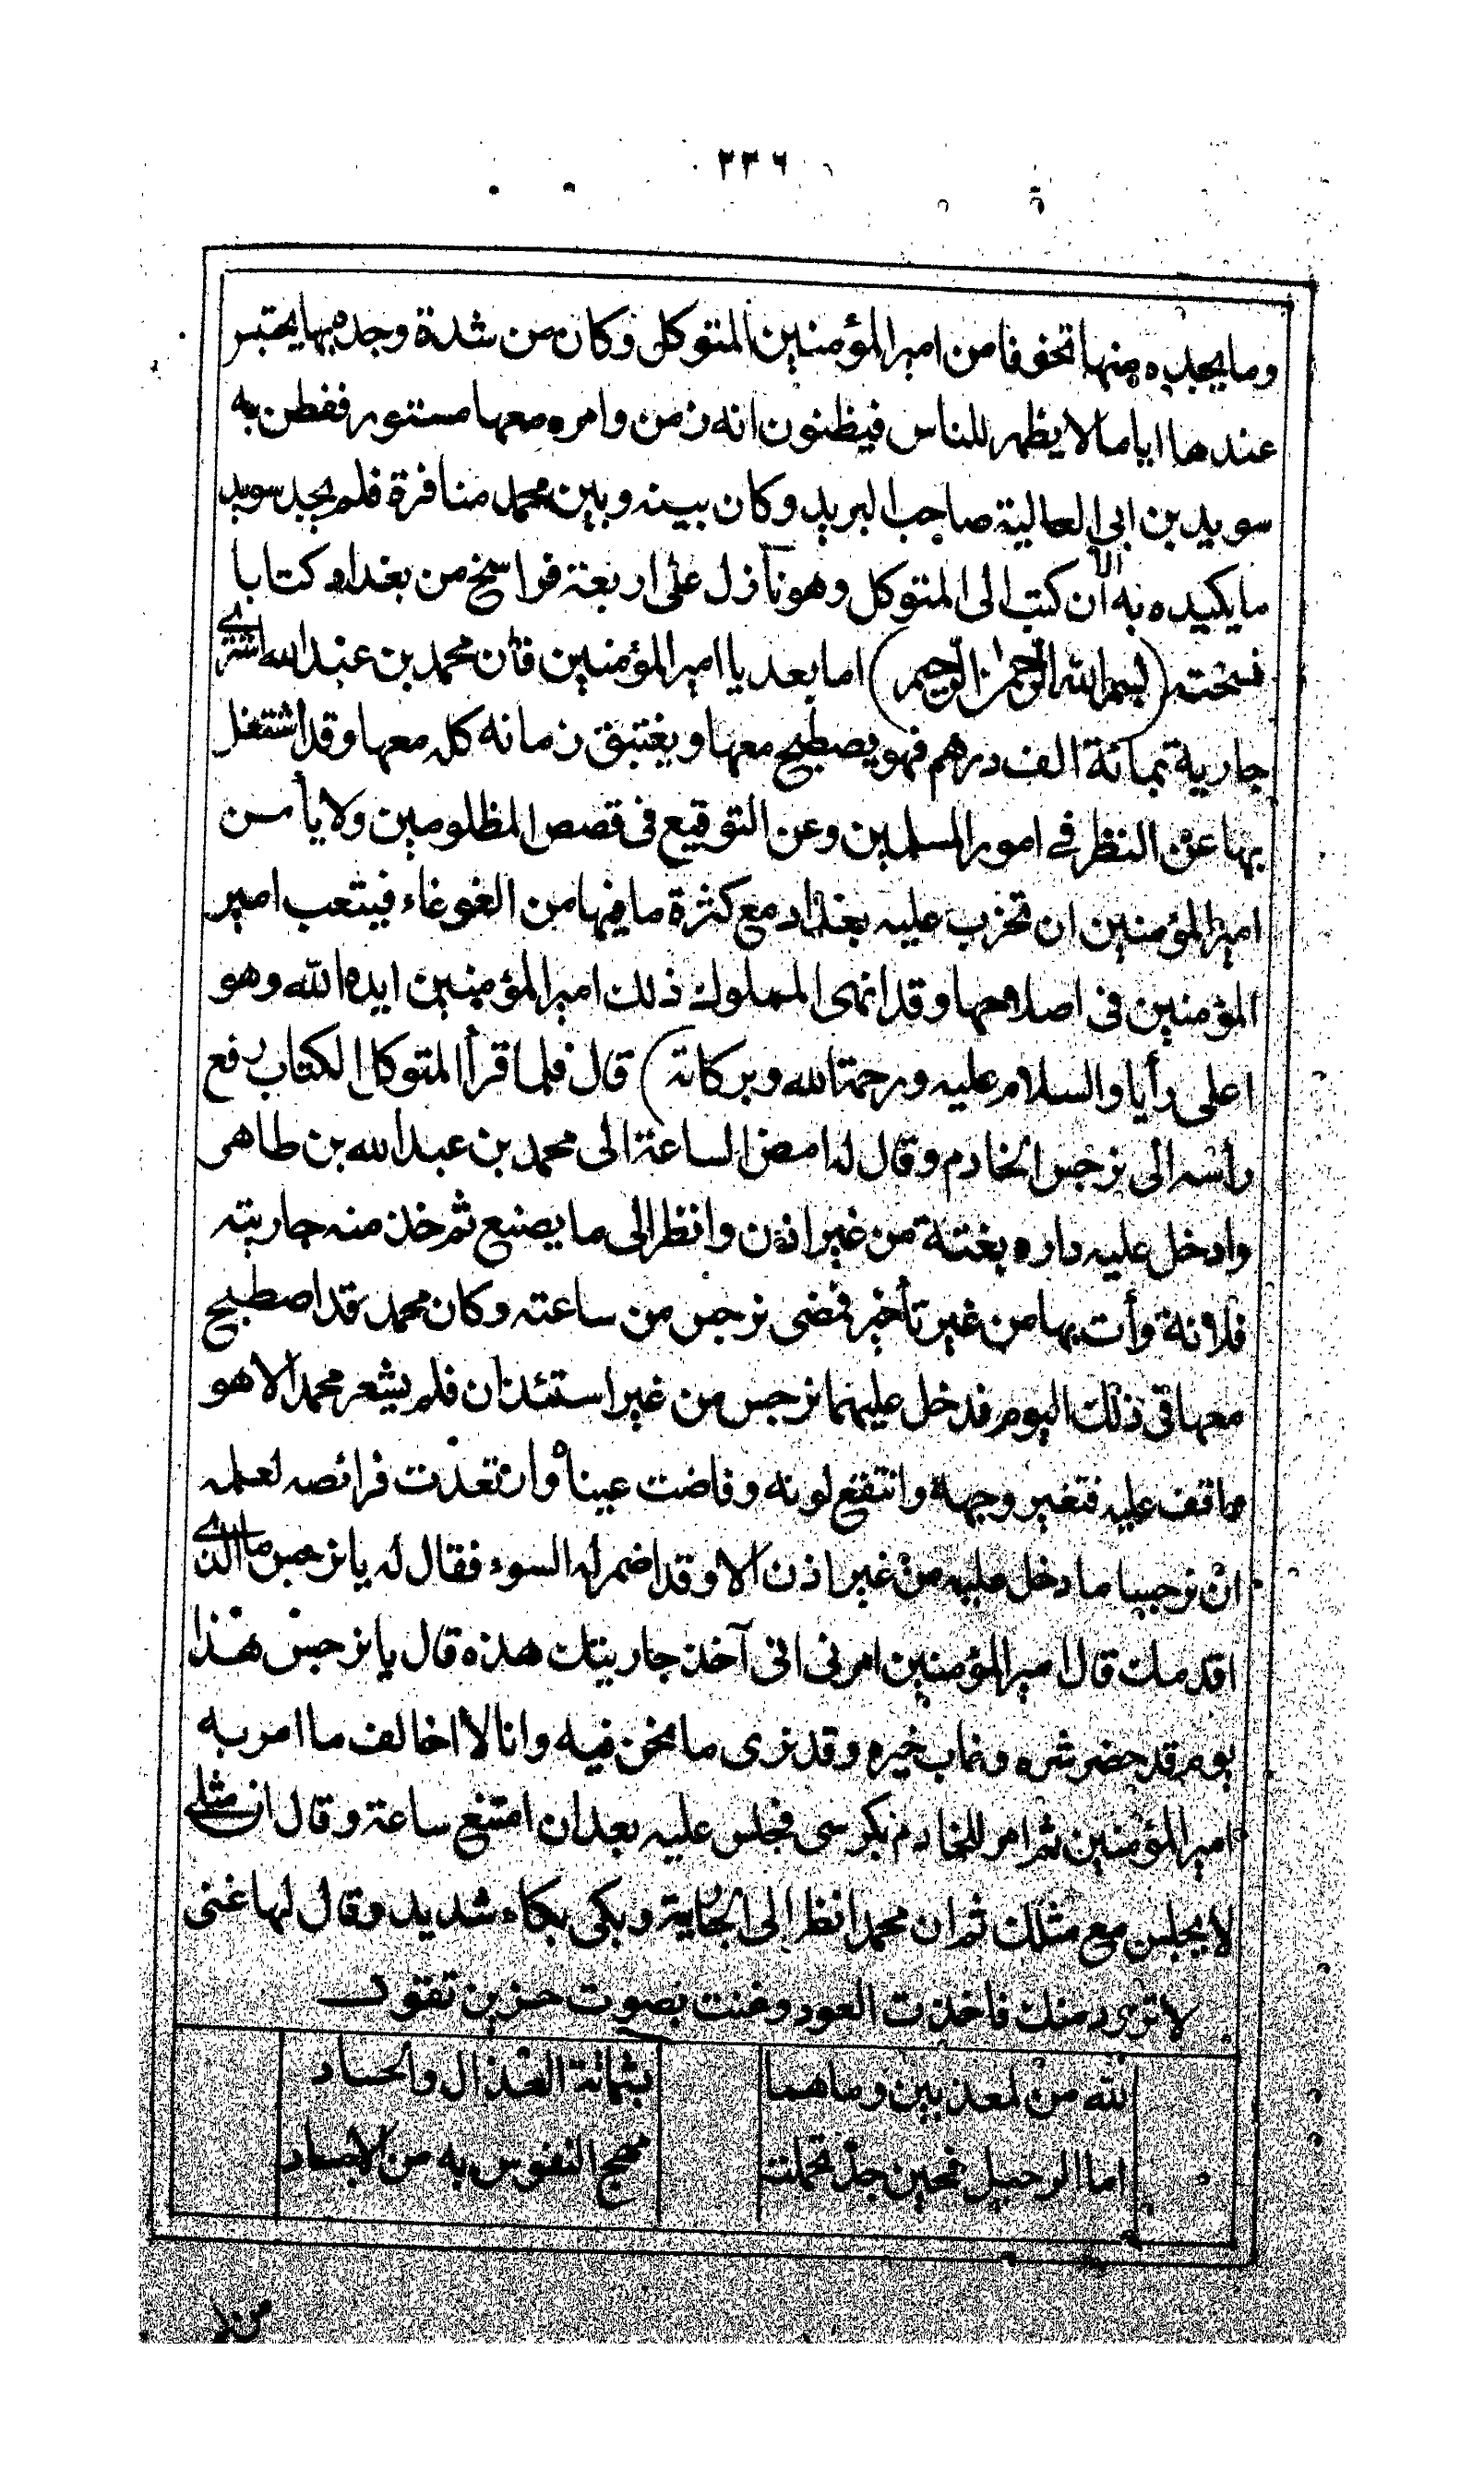 ٢٣٦
وما يجده منها تخوفا من امير المؤمنين المتوكل وكان من شدة وجده بها يحتبر
عندها اياما لا يظهر للناس فيظنون انه زمن وامره معها مستور ففطن به
سويد بن ابي العالية صاحب البريد وكان بينه وبين محمد منافرة فلم يجد سويد
ما يكيده به الا ان كتب الى المتوكل وهو نازل على اربعة فراسخ من بغداد كتابا
نسخته (بسم الله الرحمن الرحيم) اما بعد يا امير المؤمنين فان محمد بن عبد الله اشترى
جارية بمائة الف درهم فهو يصطبح معها ويغتبق زمانه كله معها وقد اشتغل
بها عن النظر في امور المسلمين وعن التوقيع في قصص المظلومين ولا يأمن
امير المؤمنين ان تخرب عليه بغداد مع كثرة ما فيها من الغوغاء فيتعب امير
المؤمنين في اصلاحها وقد انهى المملوك ذلك امير المؤمنين ايده الله وهو
اعلى رأيا والسلام عليه ورحمة الله وبركاته) قال فلما قرأ المتوكل الكتاب رفع
رأسه الى نرجس الخادم وقال له امض الساعة الى محمد بن عبد الله بن طاهر
وادخل عليه داره بغتة من غير اذن وانظر الى ما يصنع ثم خذ منه جاريته
فلانة وأت بها من غير تأخير فمضى نرجس من ساعته وكان محمد قد اصطبح
معها في ذلك اليوم فدخل عليهما نرجس من غير استئذان فلم يشعر محمد الا هو
واقف عليه فتغير وجهه وانتقع لونه وفاضت عيناه وارتعدت فرائصه لعلمه
ان نرجسا ما دخل عليه من غير اذن الا وقد اضمر له السوء فقال له يا نرجس ما الذي
اقدمك قال امير المؤمنين امرني اني آخذ جاريتك هذه قال يا نرجس هذا
يوم قد حضر شره وغاب خيره وقد ترى ما نحن فيه وانا لا اخالف ما امر به
امير المؤمنين ثم امر للخادم بكرسي فجلس عليه بعد ان امتنع ساعة وقال ان مثلي
لا يجلس مع مثلك ثم ان محمد انظر الى الجارية وبكى بكاء شديد وقال لها غني
لا تزود منك فاخذت العود وغنت بصوت حزين تقول
لله من لمعذبين وما هما بشماتة العذال والحساد
اما الرحيل فحين جد تحملت مهج النفوس به من الاجساد